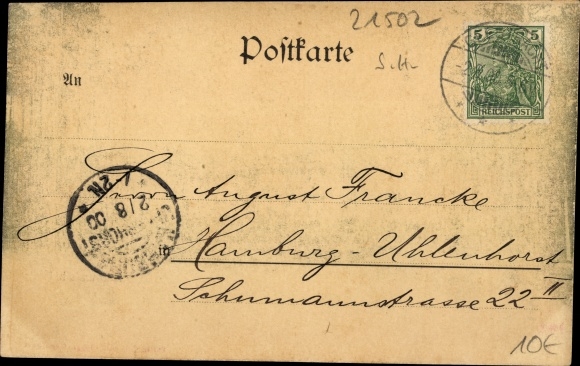 21502
Postkarte
S.H.
An
5 5
REICHSPOST
Herrn August Francke
2/8 00
2N
in Hamburg-Uhlenhorst
Schumannstrasse 22 II
10€